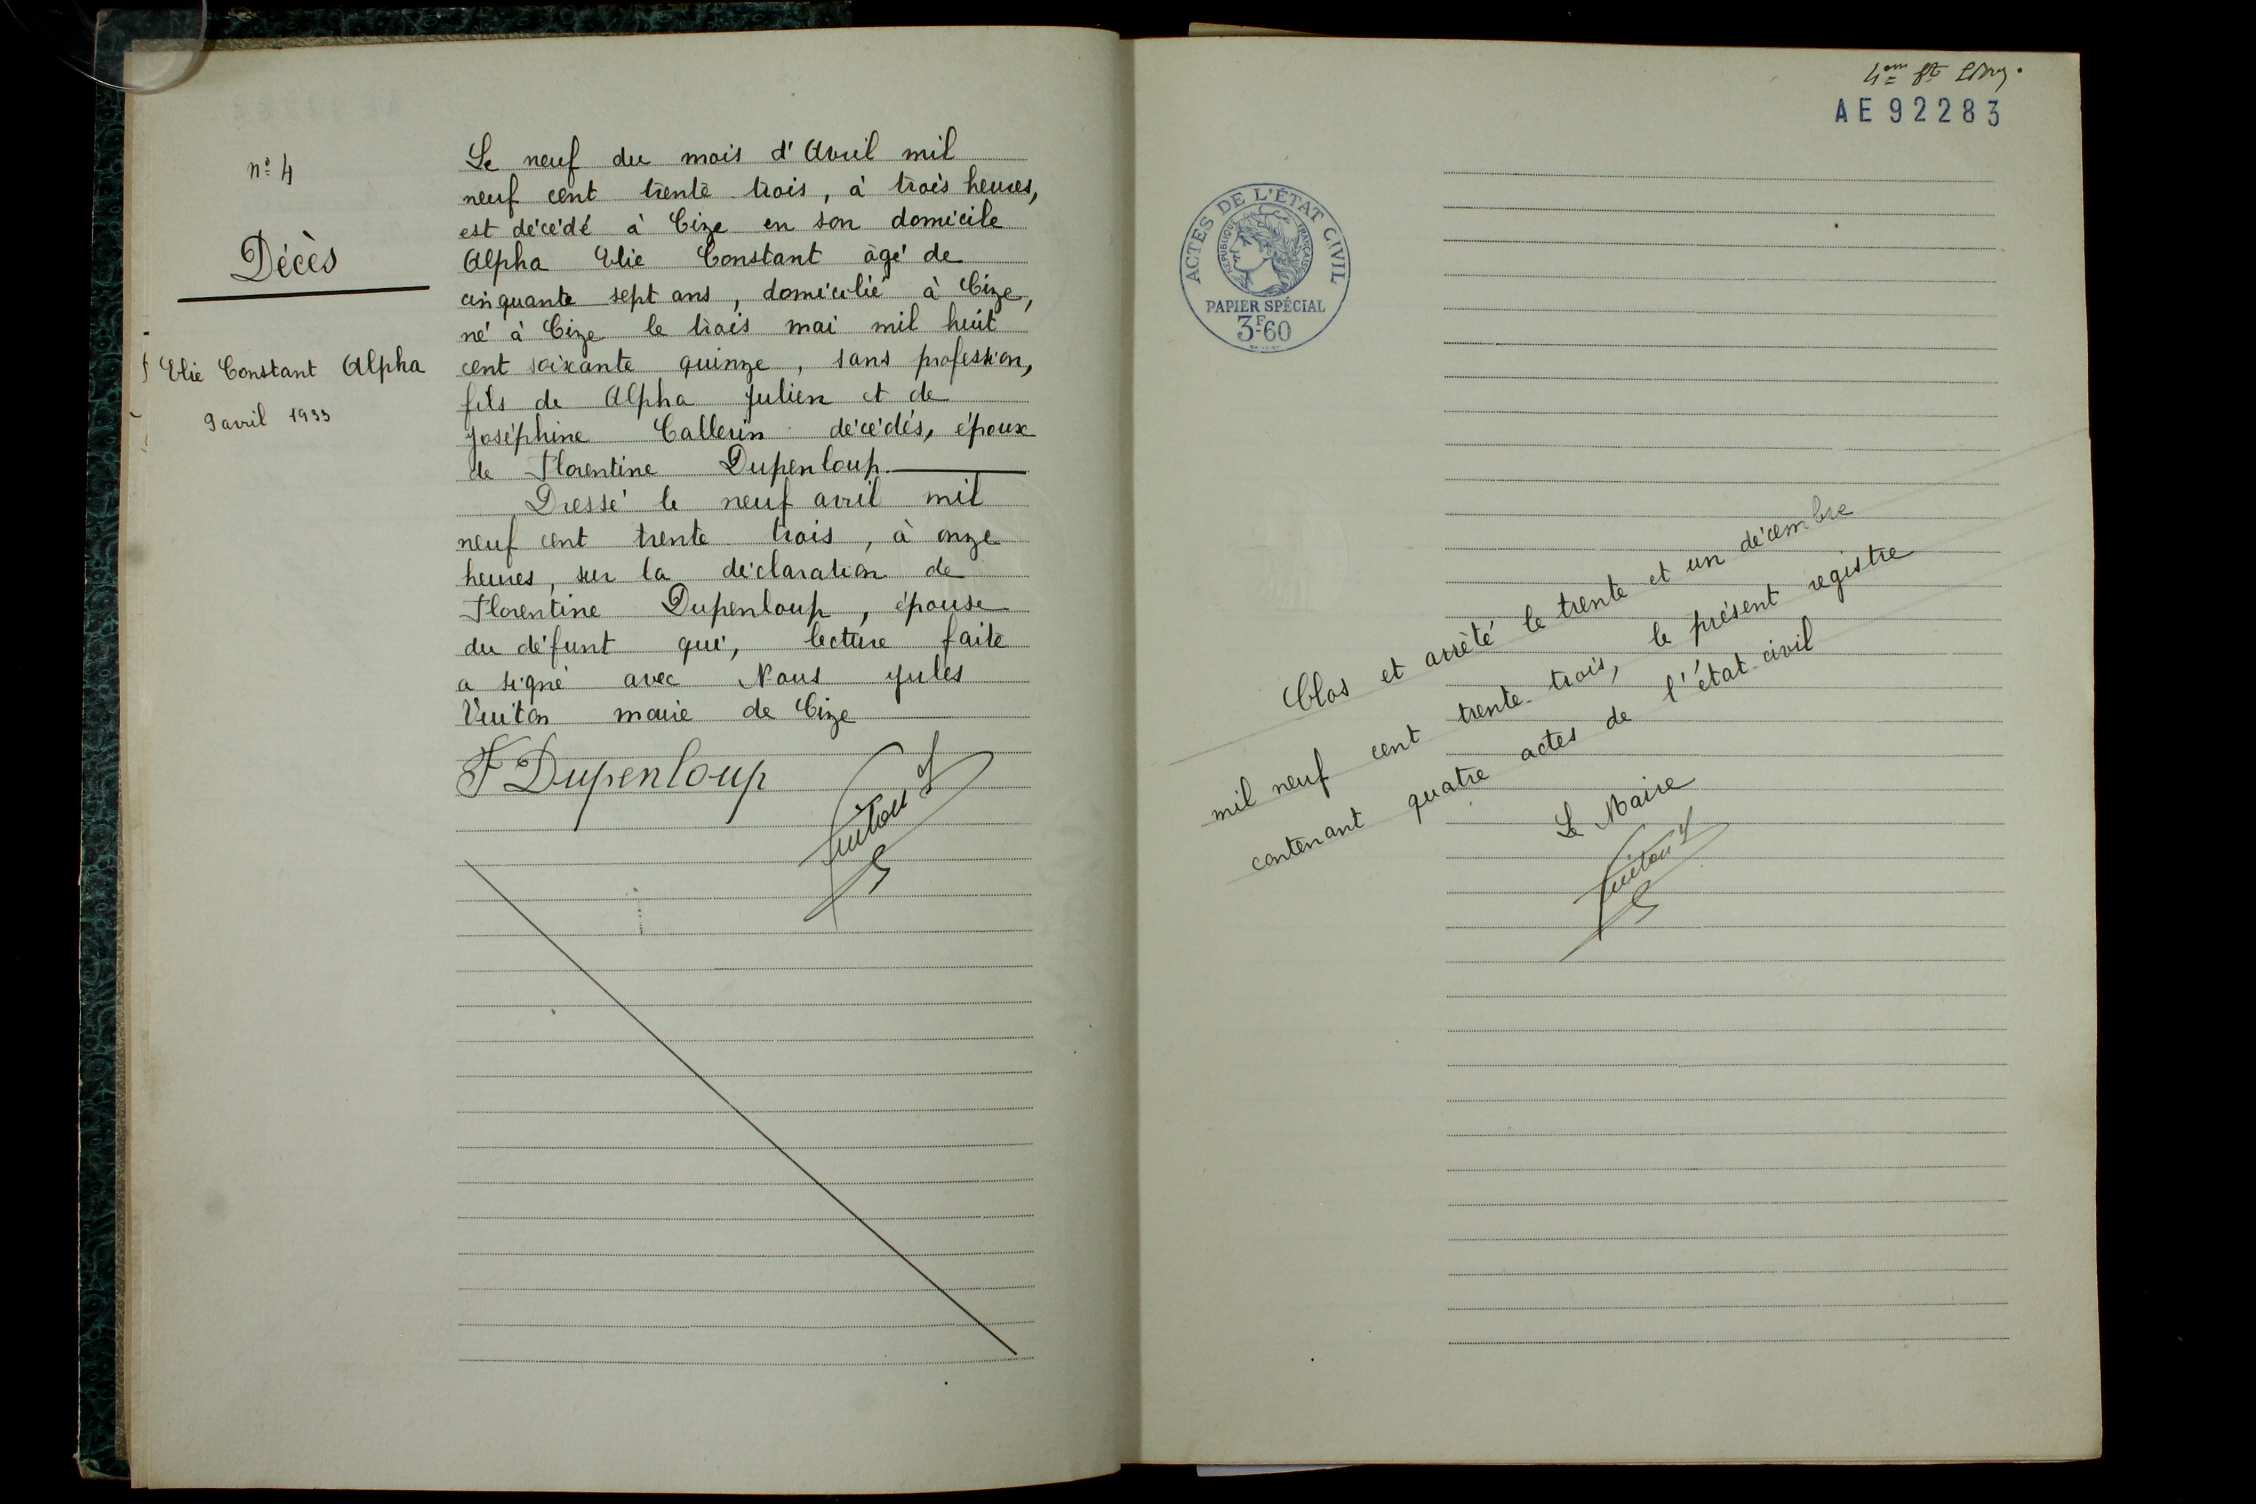 n° 4
Décès
Elie Constant Alpha
9 avril 1933
Le neuf du mois d'Avril mil
neuf cent trente trois, à trois heures,
est décédé à Cize en son domicile
Alpha Elie Constant âgé de
cinquante sept ans, domicilié à Cize,
né à Cize le trois mai mil huit
cent soixante quinze, sans profession,
fils de Alpha Julien et de
Joséphine Callerin décédés, époux
de Florentine Dupenloup
Dressé le neuf avril mil
neuf cent trente trois, à onze
heures, sur la déclaration de
Florentine Dupenloup, épouse
du défunt qui, lecture faite
a signé avec Nous Jules
Vuiton maire de Cize
F Dupenloup
Vuiton J
4em ft
AE92283
ACTES DE L'ÉTAT CIVIL
RÉPUBLIQUE FRANÇAISE
PAPIER SPÉCIAL
3F60
Clos et arrêté le trente et un décembre
mil neuf cent trente-trois, le présent registre
contenant quatre actes de l'état-civil
Le Maire
Vuiton J